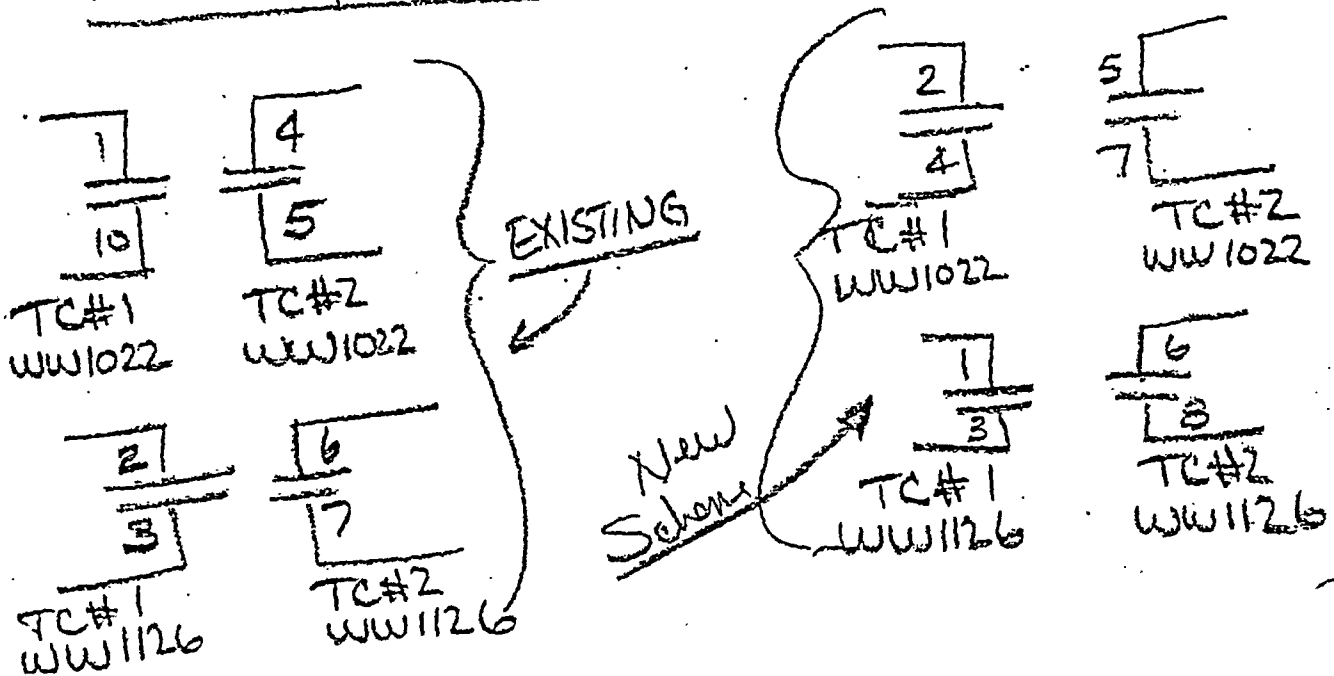 1
10
TC#1
WW1022
4
5
TC#2
WW1022
2
3
TC#1
WW1126
6
7
TC#2
WW1126
EXISTING
New
Scheme
2
4
TC#1
WW1022
5
7
TC#2
WW1022
1
3
TC#1
WW1126
6
8
TC#2
WW1126